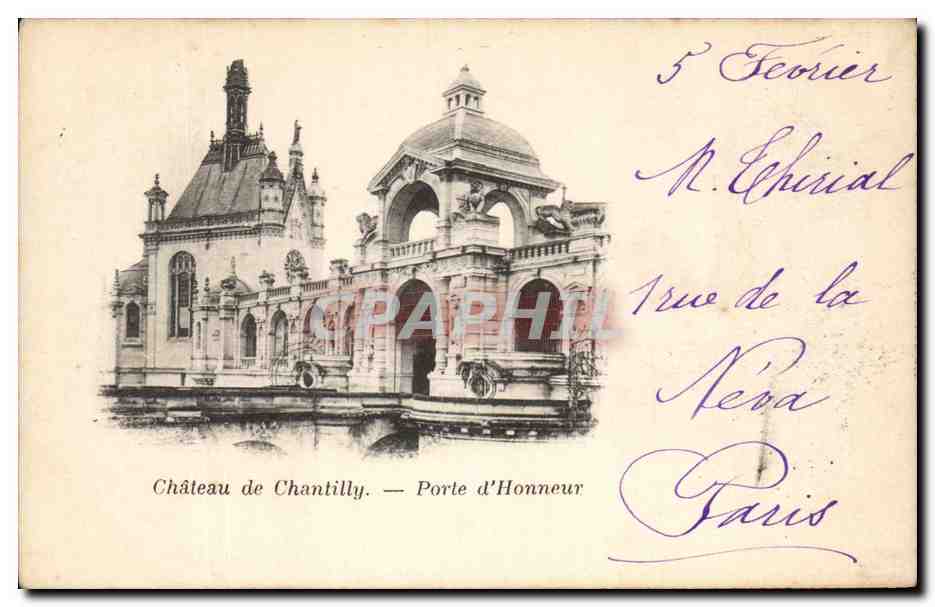 5 Fevrier
M. Thirial
1 rue de la
Néva
Paris
CAPHIL
Château de Chantilly. — Porte d'Honneur